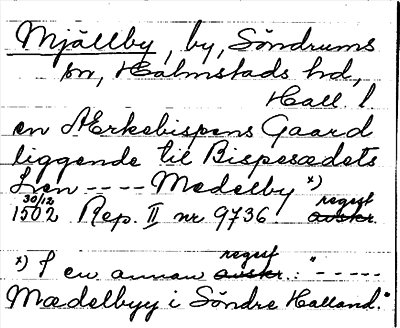 Mjällby, by, Söndrums
sn, Halmstads hd,
Hall. l
en Ærkebispens Gaard
liggende til Bispesædets
Len ---- Mædelby x)
30/12 regest
1502 Rep. II nr 9736. avskr.
regest
x) I en annan avskr.: "-----
Mædelbyy i Söndre Halland."